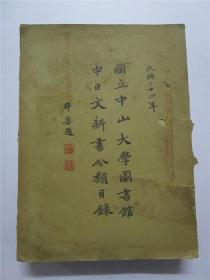 民國二十四年
國立中山大學圖書館
中日文新書分類目錄
鄒魯題